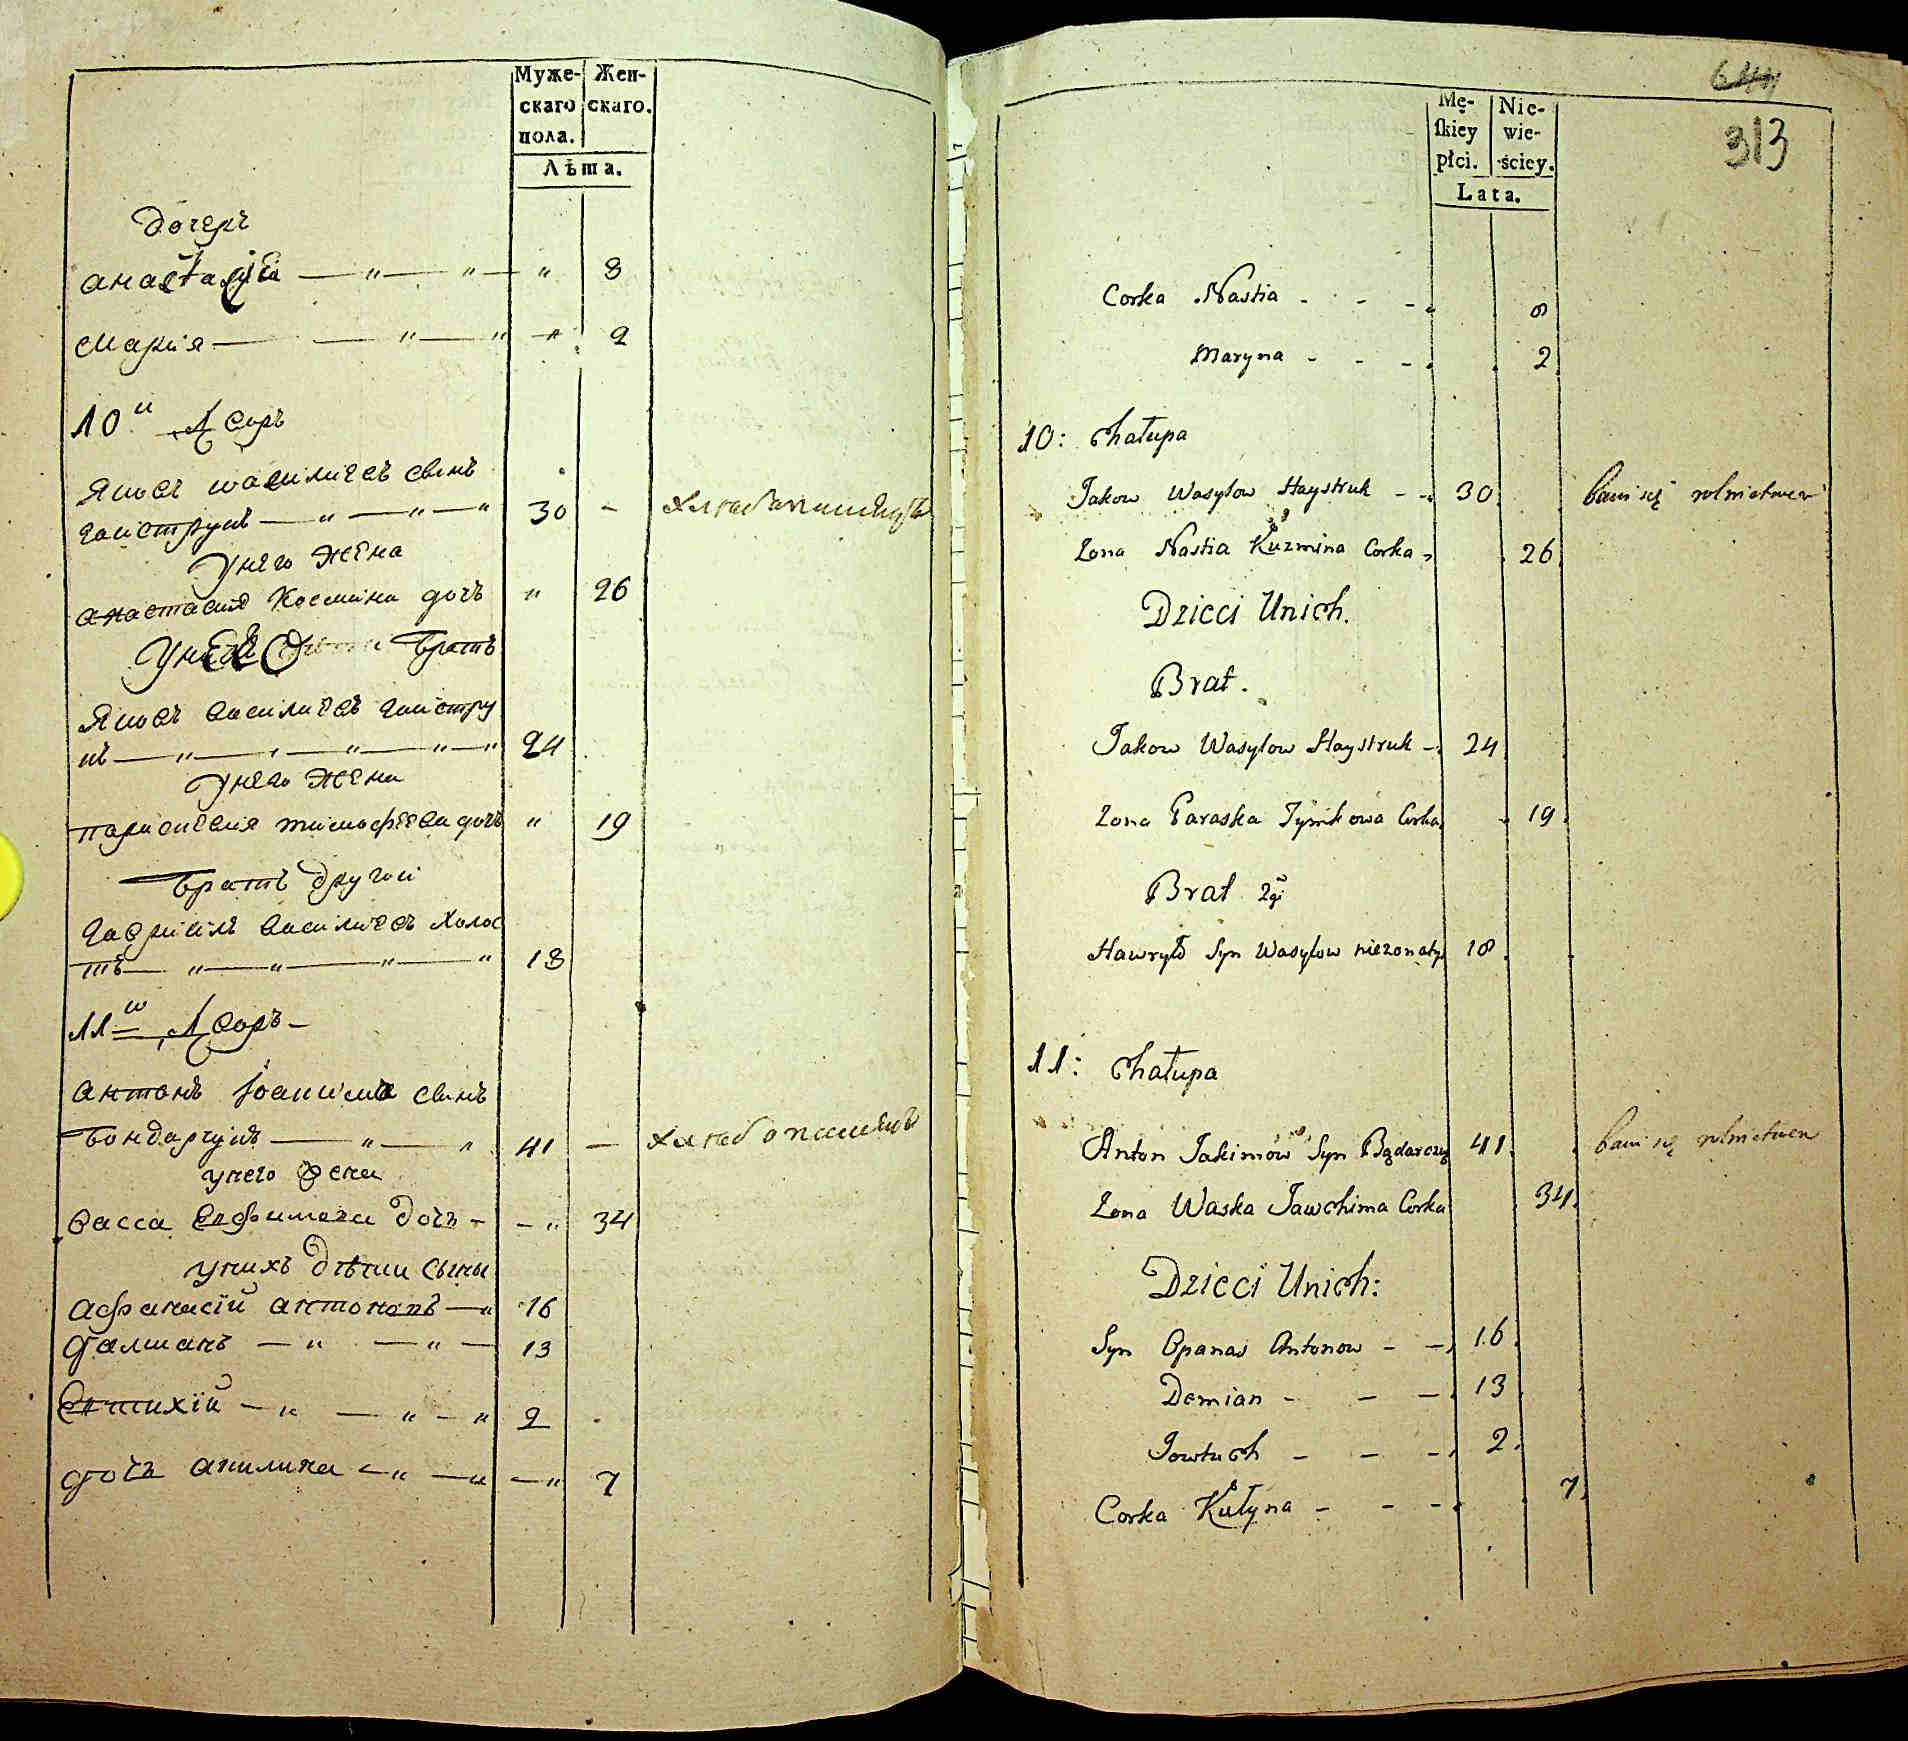 Муже-
скаго
пола.
Жен-
скаго.
Лѣта.
дочерѣ
анастасія — " — " — " 8
Марія — " — " — " 2
10й Дворъ
Яковъ василиевъ сынъ
гайструкъ — " — " — " 30 - хлебопашецъ
унего жена
анастасия Космина дочь " 26
унего братъ
Яковъ василиевъ гайстру
къ — " — " — " — " 24
унего жена
параскевия тимофеева дочь " 19
братъ другой
гавриилъ василиевъ холос
тъ — " — " — " — " 18
11й Дворъ —
антонъ Іоакимов сынъ
бондарчукъ — " — " 41 — хлебопашецъ
унего жена
васса Евфимова дочь - - " 34
унихъ дѣти сыны
афанасій антоновъ — " 16
дамианъ — " — " — 13
Евтихій — " — " — " 2
дочь акилина — " — " — " 7
644
313
Mę-
skiey
płci.
Nie-
wie-
ściey.
Lata.
Corka Nastia - - - 8
Maryna - - - 2
10: Chałupa
Jakow Wasylow Haystruk - - 30 bawi się rolnictwem
Zona Nastia Kuzmina Corka - 26
Dzieci Unich.
Brat.
Jakow Wasylow Haystruk - 24
Zona Paraska Tymkowa Corka 19
Brat 2gi
Hawryło Syn Wasylow niezonaty 18
11: Chałupa
Anton Jakimow Syn Bądarczuk 41 bawi się rolnictwem
Zona Waska Jawchima Corka 34
Dzieci Unich:
Syn Opanas Antonow - - 16
Demian - - - 13
Jowtuch - - - 2
Corka Kułyna - - - 7